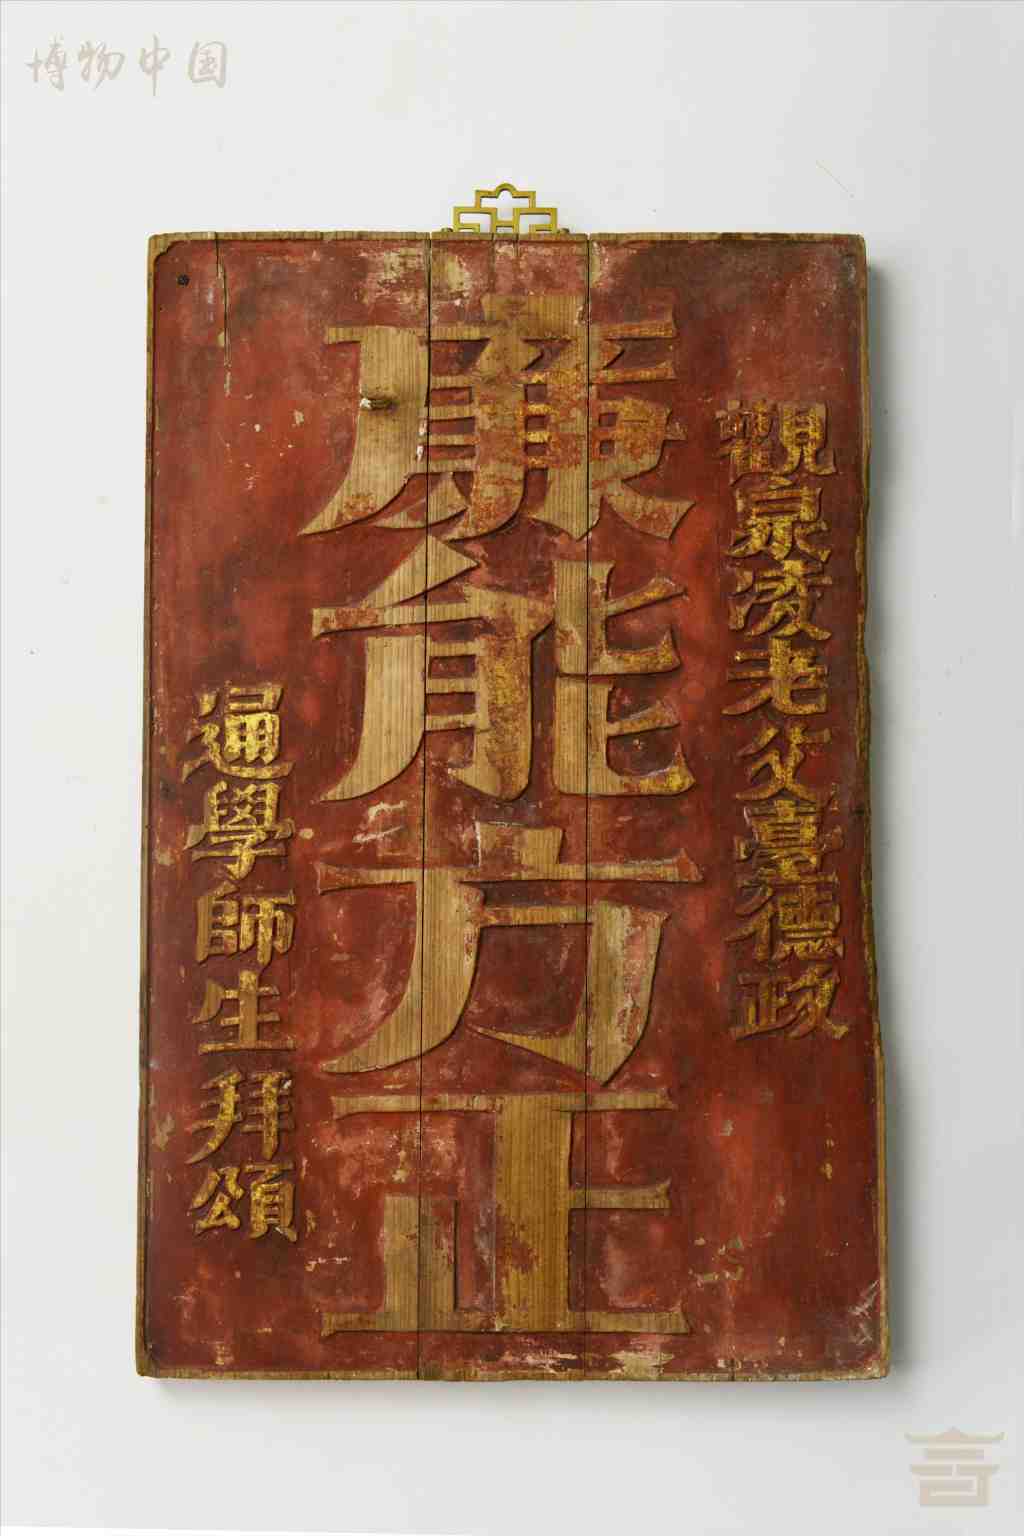 博物中国
觀泉凌老父臺德政
廉能方正
通學師生拜頌